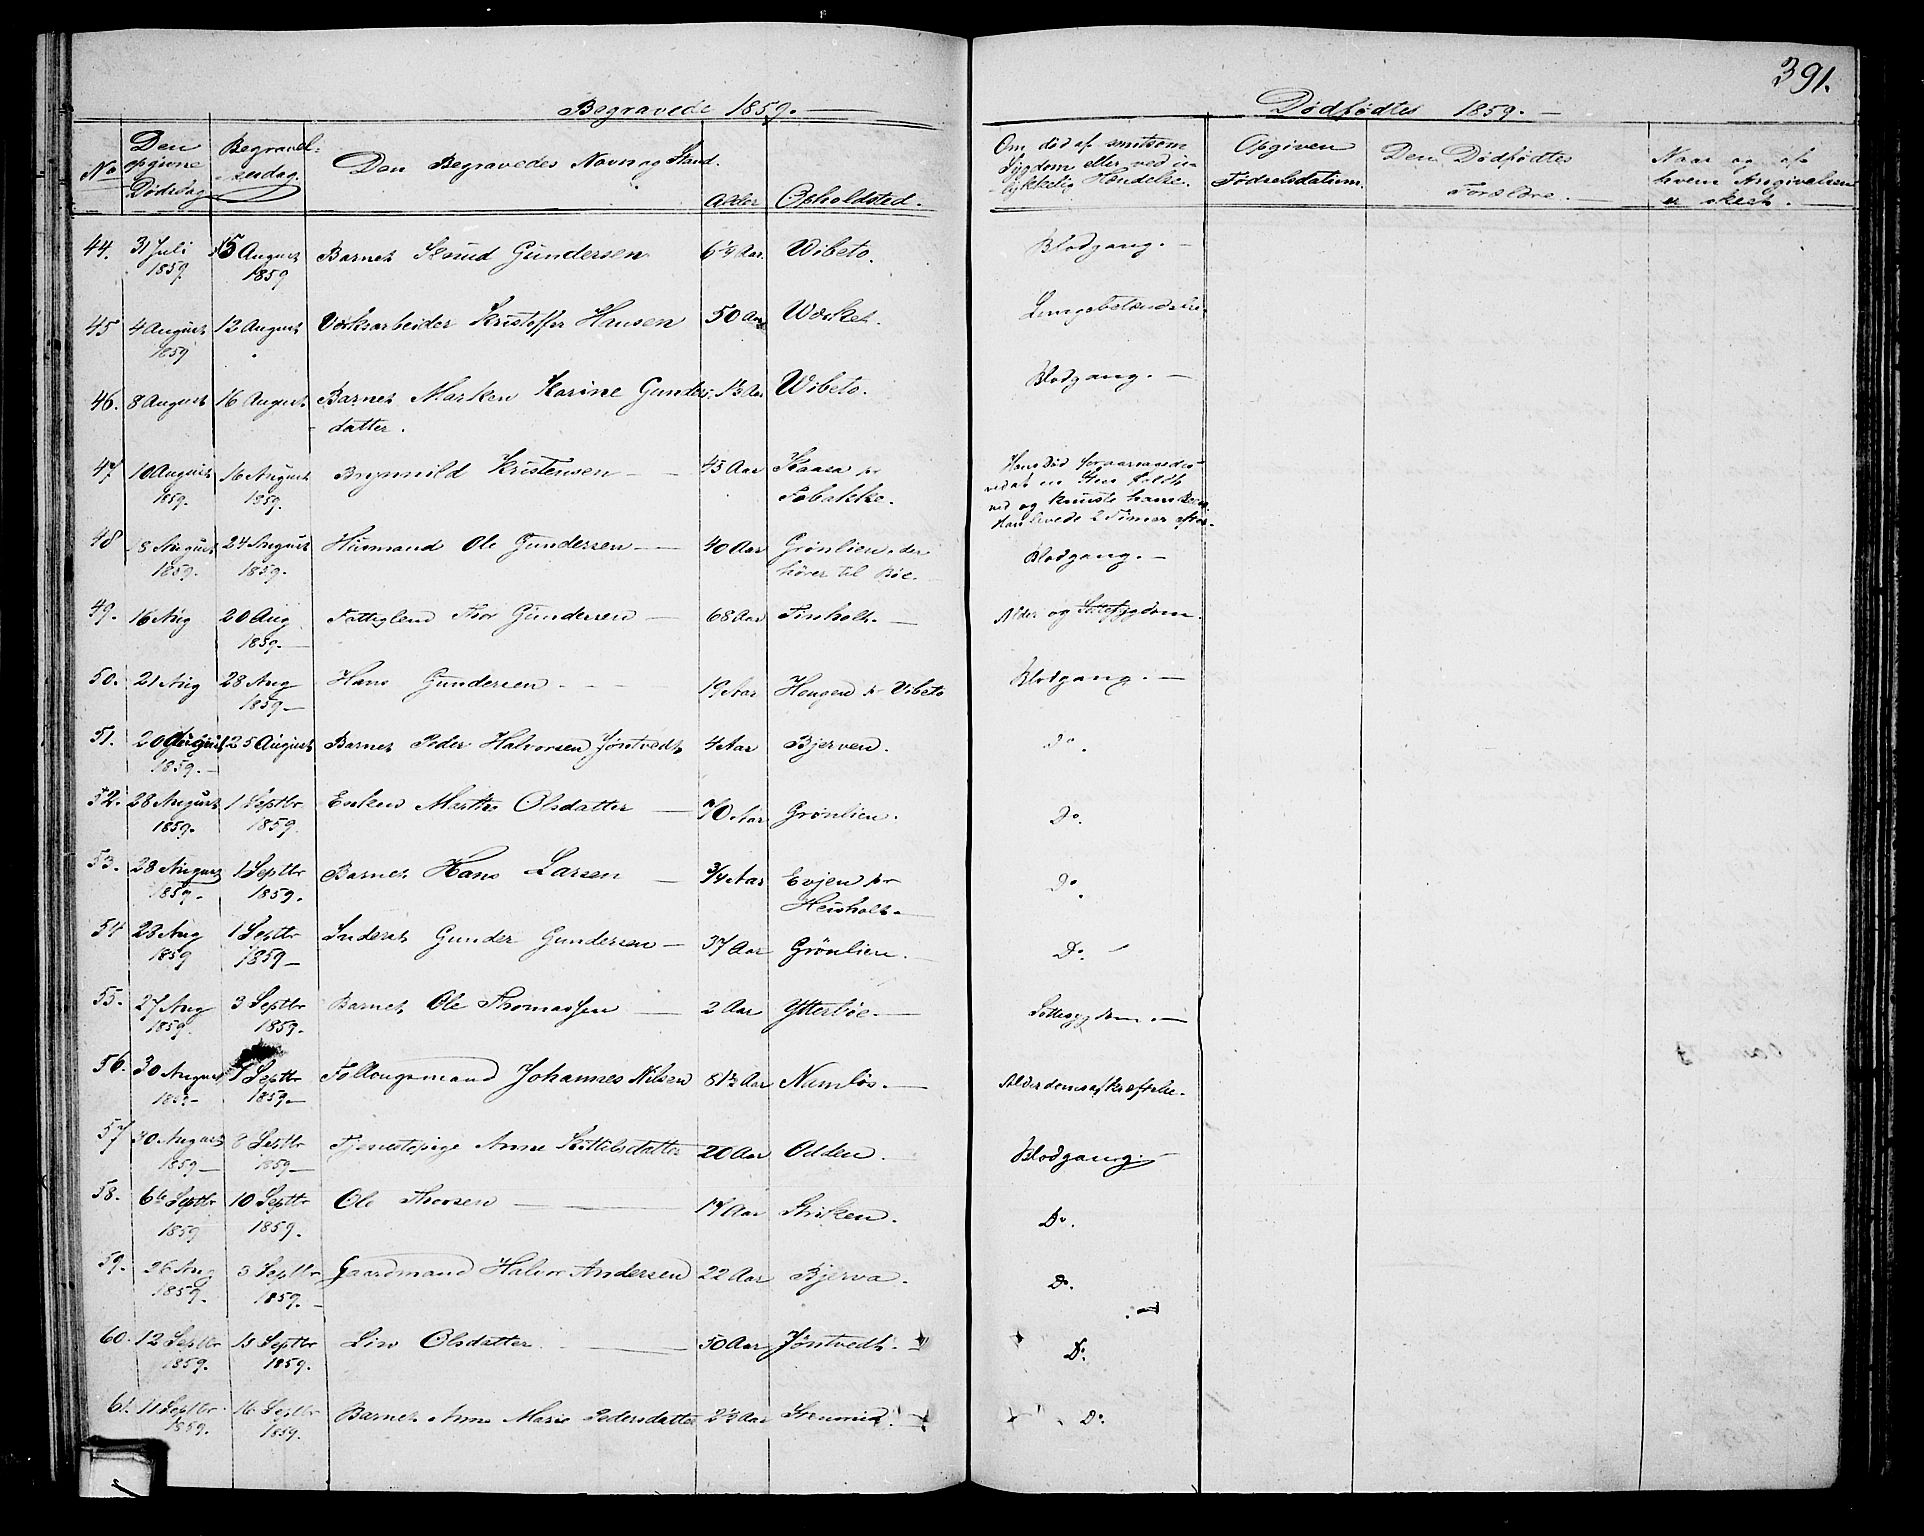 391.
Begravede 1859.
No
Den opgivne Dødsdag
Begravelsesdag.
Den Begravedes Navn og Stand.
Alder
Opholdsted.
44. 31 Juli 1859 15 August 1859 Barnet Knud Gundersen 6 Aar Wibeto.
45 4 August 1859 12 August Værksarbeider Kristoffer Hansen 50 Aar Værket.
46. 8 August 16 August Barnet Maren Karine Gunders- 13 Aar Wibeto.
datter.
47 10 August 1859. 16 August 1859. Brynnild Kristensen 45 Aar Kaasa pr
Fobakke.
48 8 August 1859. 24 August 1859. Husmand Ole Gundersen 40 Aar Grønlien, der
hører til Bøe.
49. 16 Aug 20 Aug 1859. Fattiglem Thor Gundersen 68 Aar Finholt.
50. 21 Aug 28 Aug 1859 Hans Gundersen 19 Aar Haugen pr Vibeto
51. 20 August 1859. 25 August Barnet Peder Halvorsen Jøntvedt 4 Aar Bjerven.
52. 28 August 1859. 1 Septbr 1859. Enken Marthe Olsdatter 70 Aar Grønlien.
53. 28 August 1859. 1 Septbr 1859. Barnet Hans Larsen 3/4 Aar Evjen pr
Heisholt.
54 28 Aug 1859 1 Septbr 1859 Inderst Gunder Gundersen 37 Aar Grönlien.
55. 27 Aug 1859. 3 Septbr 1859. Barnet Ole Thomassen 2 Aar Ytterbøe.
56. 30 August 1859 7 Septbr 1859 Føllaugsmand Johannes Nilsen 81 1/2 Aar Namløs.
57 30 August 1859 8 Septbr 1859 Tjenestepige Anne Kittilsdatter 20 Aar Odden.
58. 6te Septbr 1859 10 Septbr 1859. Ole Thorsen 14 Aar Striken.
59. 26 Aug 1859. 3 Septbr 1859. Gaardmand Halvor Andersen 22 Aar Bjerva.
60. 12 Septbr 1859. 15 Septbr 1859. Liv Olsdatter 50 Aar Jøntvedt.
61. 11 Septbr 1859. 16 Septbr 1859. Barnet Anne Marie Pedersdatter 2 1/2 Aar
Dødfødte 1859.
Om død af smitsom
Sygdom eller ved u-
lykkelig Hændelse.
Opgiven
Fødselsdatum.
Den Dødfødtes
Forældre.
Naar og af
hvem Angivelsen
er skeet.
Blodgang.
Lungebetændelse.
Blodgang.
Hans Død foraarsagedes
ved at en Sten faldt
ned og knuste hans
Han levede 2 Timer
Blodgang.
Alder og Sottesygdom.
Blodgang.
Do.
Do.
Do.
Do.
Sottesygdom.
Alderdomsafkræftelse.
Blodgang.
Do.
Do.
Do.
Do.